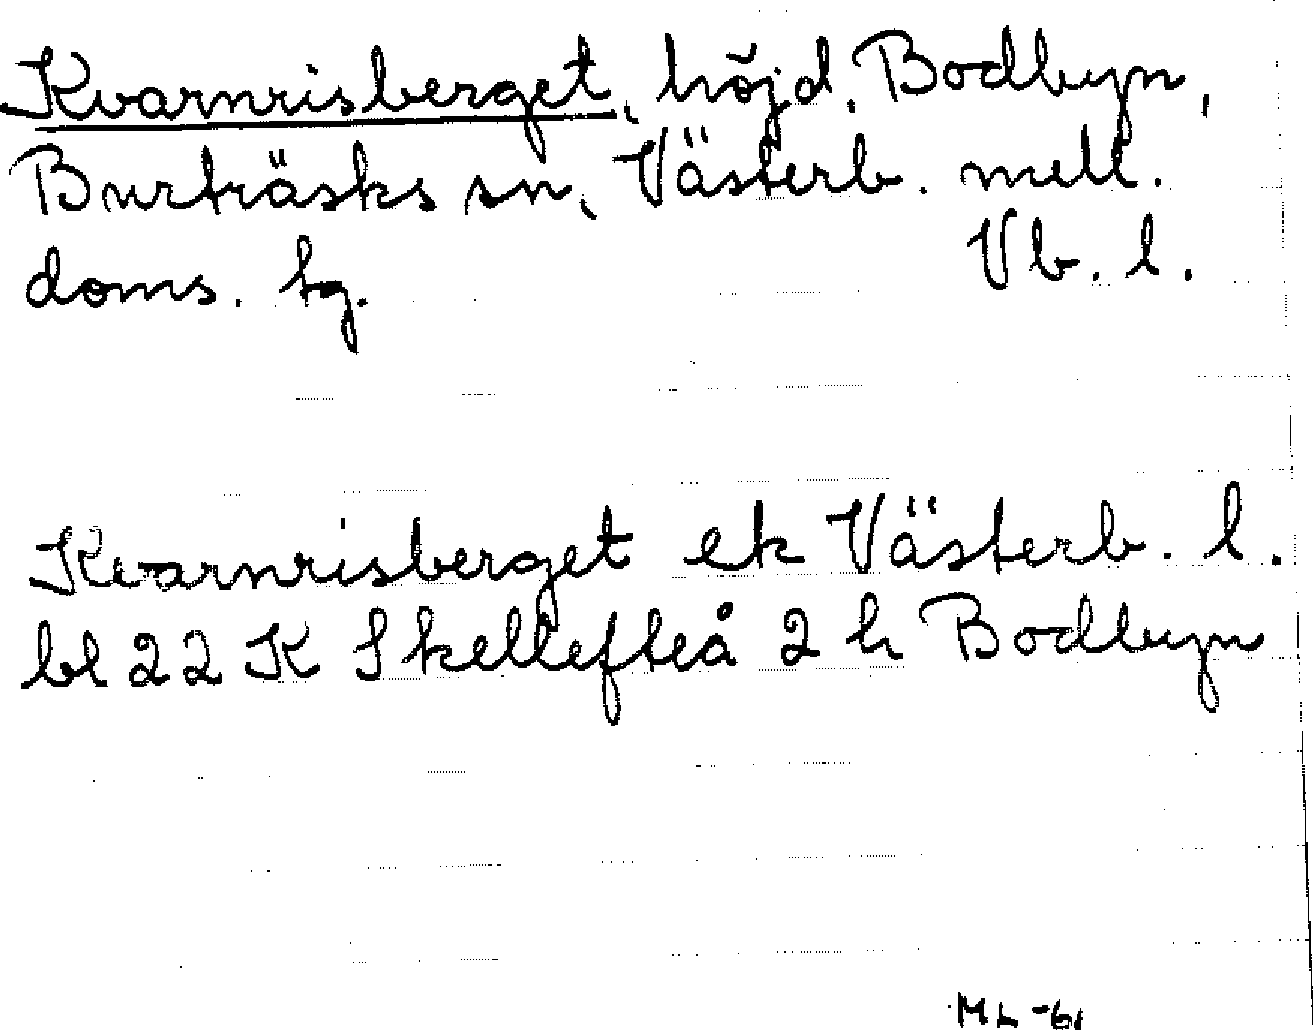 Kvarnrisberget, höjd, Bodbyn,
Burträsks sn, Västerb. mell.
doms. tg. Vb. l.
Kvarnrisberget ek Västerb. l.
bl 22 K Skellefteå 2 h Bodbyn
ML -61